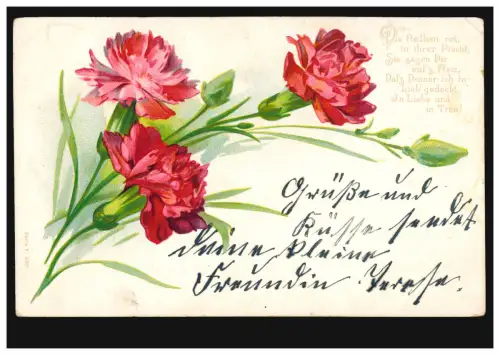 Die Nelken rot,
in ihrer Pracht,
Sie sagen Dir
auf's Neu,
Daß Deiner ich in
Lieb gedacht
in Treu!
Grüße und
Küsse sendet
deine kleine
Freundin Therese.